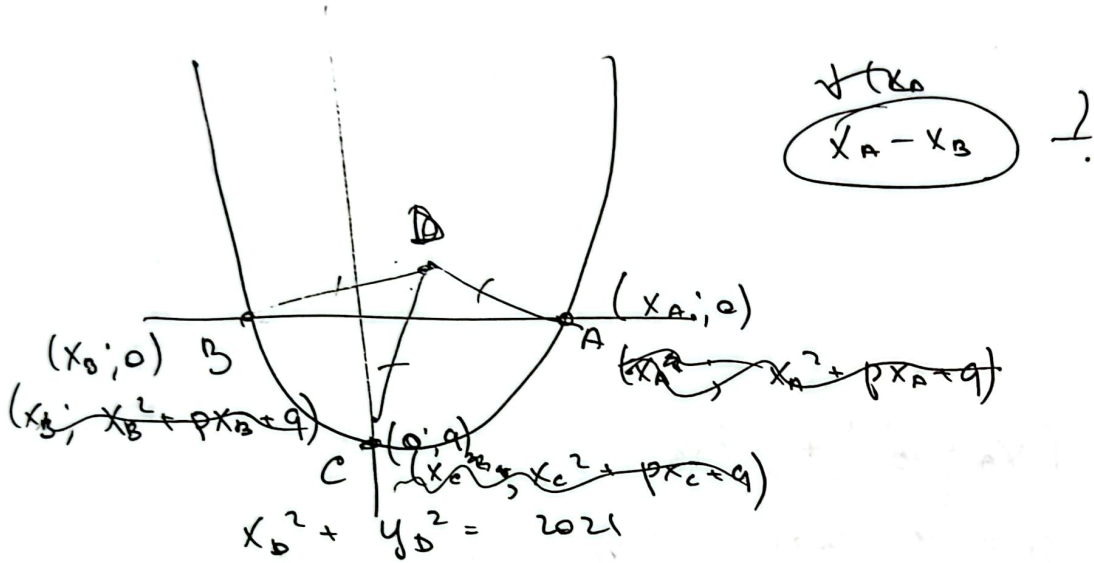 ∀(x_A
x_A - x_B ?
D
(x_A; 0)
(x_B; 0) B
A
(x_A; x_A² + px_A + q)
(x_B; x_B² + px_B + q)
C (0; q)
(x_C; x_C² + px_C + q)
x_D² + y_D² = 2021